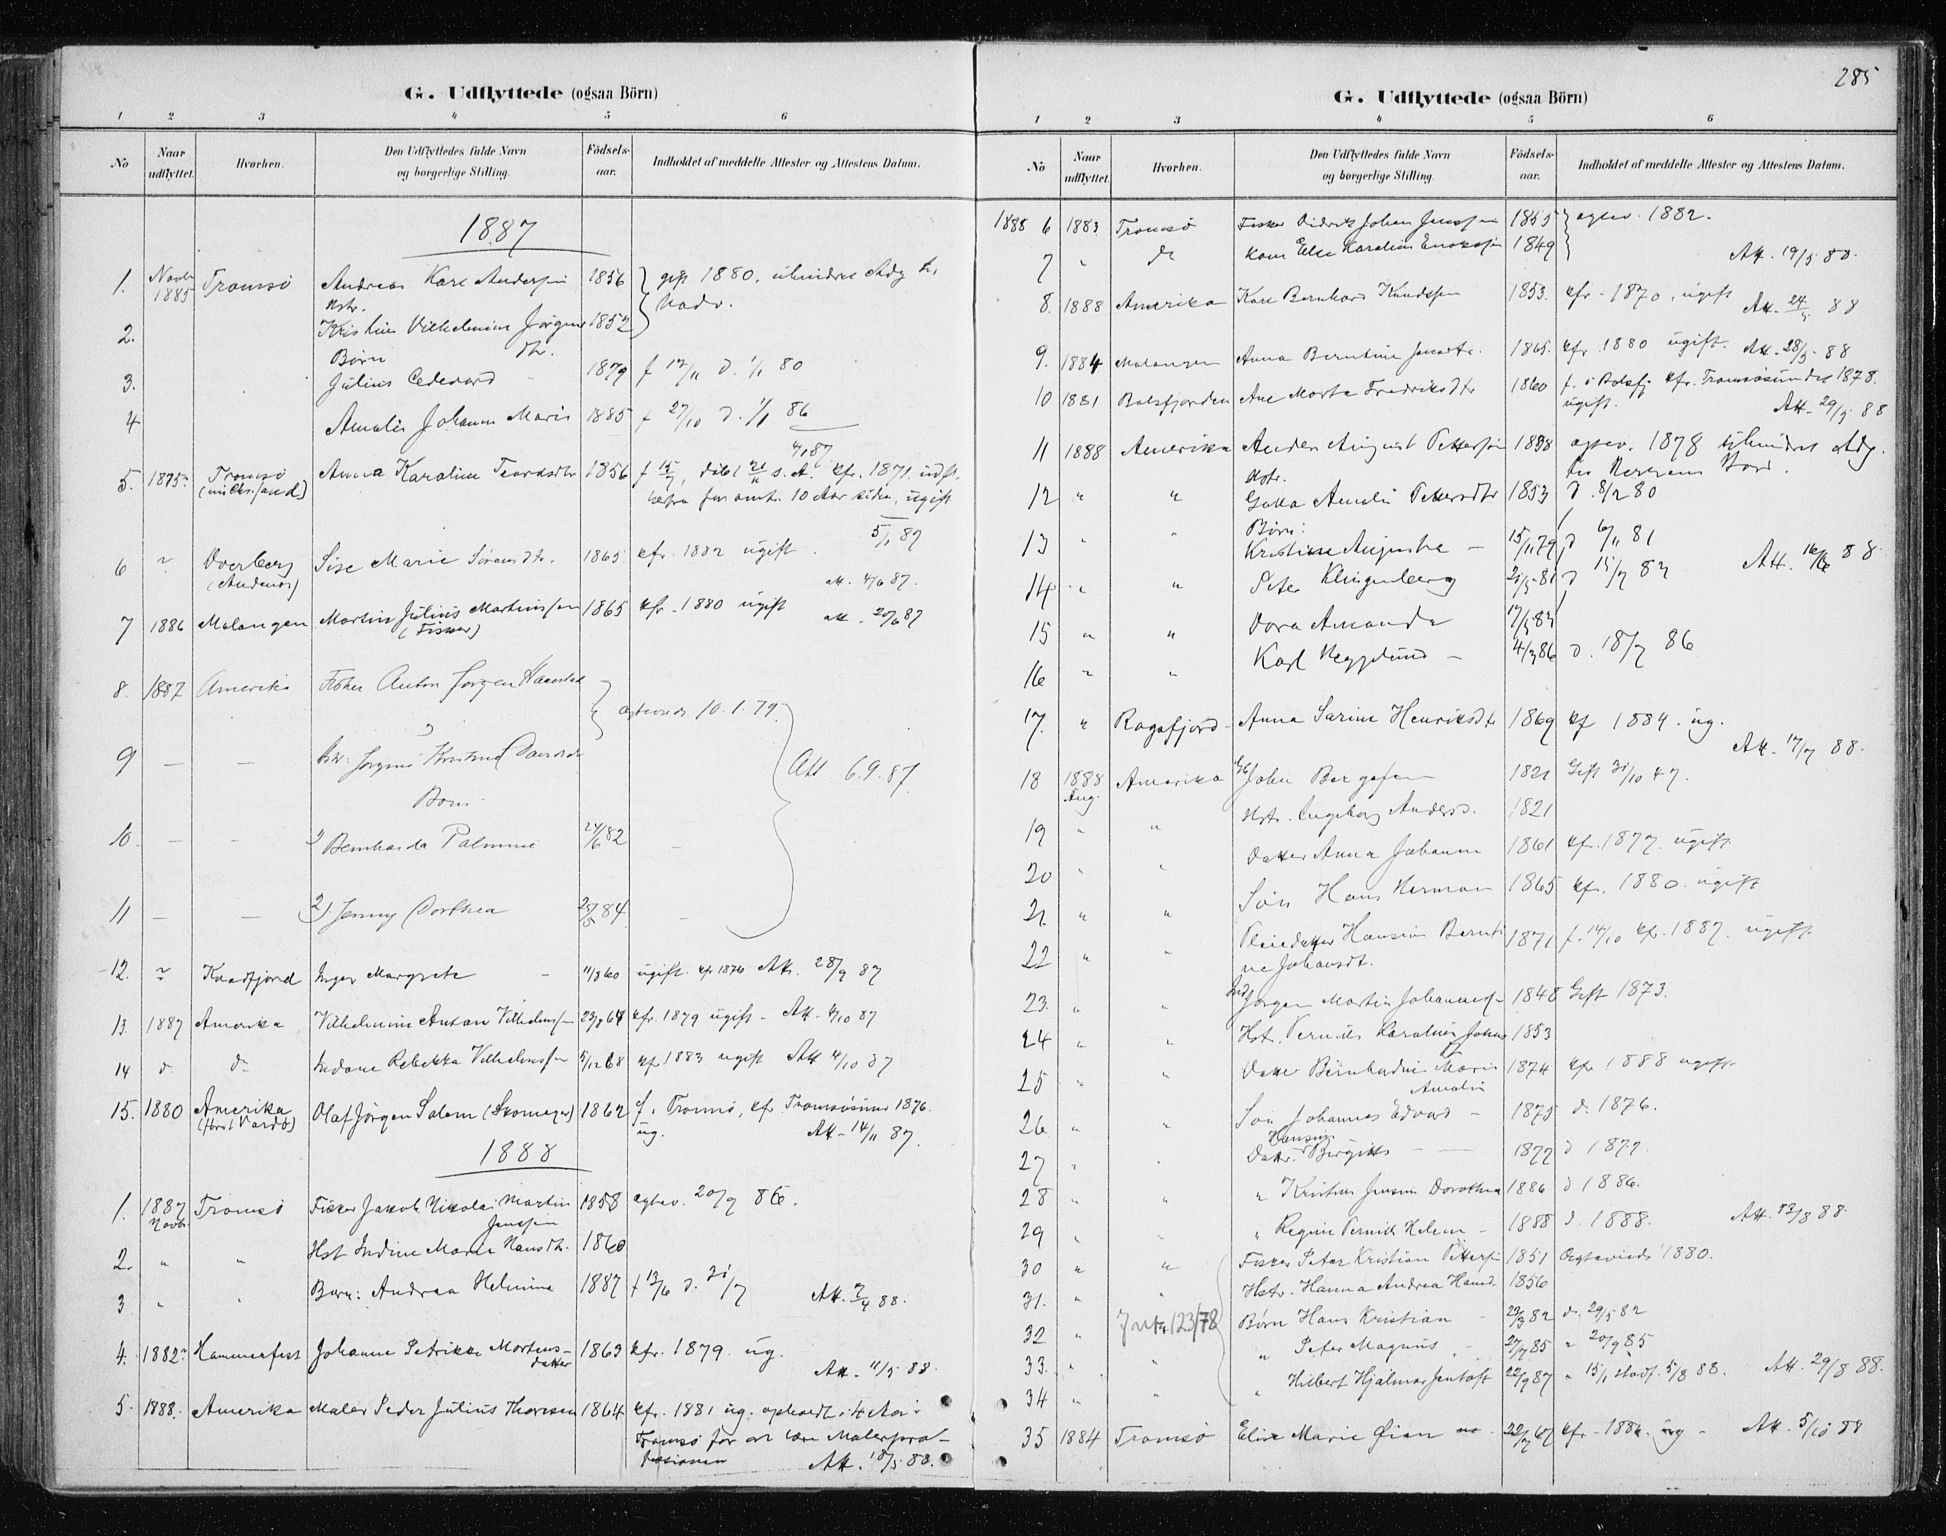 G. Udflyttede (ogsaa Börn)
1 2 3 4 5 6
No Naar udflyttet. Hvorhen. Den Udflyttedes fulde Navn og borgerlige Stilling. Födsels-aar. Indholdet af meddelte Attester og Attestens Datum.
1887
1. Novbr 1885 Tromsø Andreas Karl Andersen 1856 gift 1880, uhindret Adg. t.
Hstr. Nadv.
2. Kristine Vilhelmine Jörgens 1852
Börn dtr.
3. Julius Cedevard - 1879 f 12/11 d. 1/1 80
4 Amalie Johanna Marie 1885 f 27/10 d. 1/1 86
4/1 87
5. 1875 Tromsø Anna Karoline Tearksdtr 1856 f 15/7, døbt 21/11 s. A. kfr. 1871, udfl.
omtr. 10 Aar siden, ugift
5/1 87
6 " Dverberg Sise Marie Sørensdtr. 1865 kfr. 1882 ugift.
(Andenes) Att. 4/6 87.
7 1886 Malangen Martin Julius Martinussen 1865 kfr. 1880 ugift Att. 20/6 87
(Fisker)
8. 1887 Amerika Fisker Anton Jørgen Hanestad
ægteviede 10.1.79.
9 — — Hstr: Jørgine Kristine Danielsdr
Att. 6.9.87.
Børn.
10. — — 1) Bernharda Palmine 24/6 82 —
11 — — 2) Jenny Dorthea 25/5 84. —
12. " Kvædfjord Inger Margrete - 11/8 60 ugift. kfr 1876 Att. 28/9 87
13. 1887 Amerika Vilhelmine Antan Vilhelms 23/8 64 kfr. 1879 ugift - Att. 4/10 87
14 d. d. Indane Rebekka Vilhelmsen 5/12 68 kfr. 1883 ugift Att 4/10 87
15. 1880 Amerika Olaf Jörgen Salem (Skomager) 1862 f. i Tromsø, kfr. Tromsøsund 1876.
(først Vardø) ug. Att - 14/11 87.
1888
1. 1887 Tromsø Fisker Jakob Nikolai Martin 1858 egtev. 20/9 86.
Novbr Jenssen
2. " " Hst Indine Marie Hansdtr. 1860
3 " " Barn: Andrea Helmine 1887 f 13/6 d. 31/7 Att. 7/4 88.
4. 1882 Hammerfest Johanne Petrikke Mortens- 1863 kfr. 1879 ug.
datter Att. 11/5 88.
5. 1888. Amerika Maler Peder Julius Thoresen 1864 kfr. 1881 ug. opholdt i 4 Aar i
Tromsø for at lære Malerpro-
fessionen Att. 18/5 88.
285
G. Udflyttede (ogsaa Börn)
1 2 3 4 5 6
No Naar udflyttet. Hvorhen. Den Udflyttedes fulde Navn og borgerlige Stilling. Födsels-aar. Indholdet af meddelte Attester og Attestens Datum.
1888 6 1883 Tromsø Fisker Didrik Johan Jenssen 1855 egtev. 1882.
7 " do Kone Else Karoline Enoksen 1849 Att. 19/5 88.
8. 1888 Amerika Karl Bernhard Knudsen 1853. kfr. 1870, ugift Att. 24/5 88
9. 1884 Malangen Anna Berntine Jensdtr. 1865. kfr. 1880 ugift. Att. 28/5 88
10 1881 Balsfjorden Ane Marta Fredriksdtr 1860 f. i Balsfj. kfr. Tromsøsundet 1878.
ugift. Att. 29/5 88
11 1888 Amerika Anders August Pettersen 1858 egtev. 1878 uhindret Adg.
Hstr. til Herrens Bord.
12 " " Gotta Amalie Pettersdtr 1853 d. 8/2 80
Børn:
13 " " Kristine Augusta — 15/11 79 d 6/1 81
14 " " Peter Klingenberg 21/5 81 d 15/7 83 Att. 16/6 88
15 " " Dora Amanda 17/5 83
16 " " Karl Heggelund — 4/3 86 d. 18/7 86
17. " Ragsfjord Anna Sarine Henriksdtr 1869 kf 1884. ug.
Att. 17/7 88.
18 1888 Amerika John Bergesen 1821 Gift 31/10 47.
Aug.
19 " " Hstr. Ingeborg Andersd. 1821
20 " " Datter Anna Johanna 1861 kfr. 1877. ugift
21. " " Søn Hans Herman 1865 kfr. 1880. ugift
22 " " Pleiedatter Hansine Bernti 1871 f. 14/10 kfr. 1887. ugift.
ne Johansdt.
23. " " Jørgen Martin Johannes 1848 Gift 1873.
24 " " Hst. Pernille Karoline Johns 1853
25 " " Datter Bernhardine Marie 1874 kfr. 1888 ugift
Amalie
26 " " Søn Johannes Edvard — 1875 d. 1876.
Hansine
27 " " Datter. Birgitte — — 1877 d 1877.
28 " " " Kristine Jensine Dorothea 1886 d 1886.
29 " " " Regine Pernille Helene — 1888 d. 1888. Att. 13/8 88.
30 " " Fisker Peter Kristian Pettersen 1851 Ægteviede 1880.
31. " " Hstr. Hanna Andrea Hansd. 1856
32 " Jnr. 123/78 Børn Hans Kristian - 23/3 82 d. 29/5 82
33. " " " Peter Magnus - 27/7 85 " 20/9 85
34 " " " Hilbert Hjalmar Jentoft 22/9 87 " 15/1 stadf. 5/8 88. Att. 29/8 88.
35 1884 Tromsø Elise Marie Øien 22/7 67 kfr. 1884. ug - Att. 5/10 88